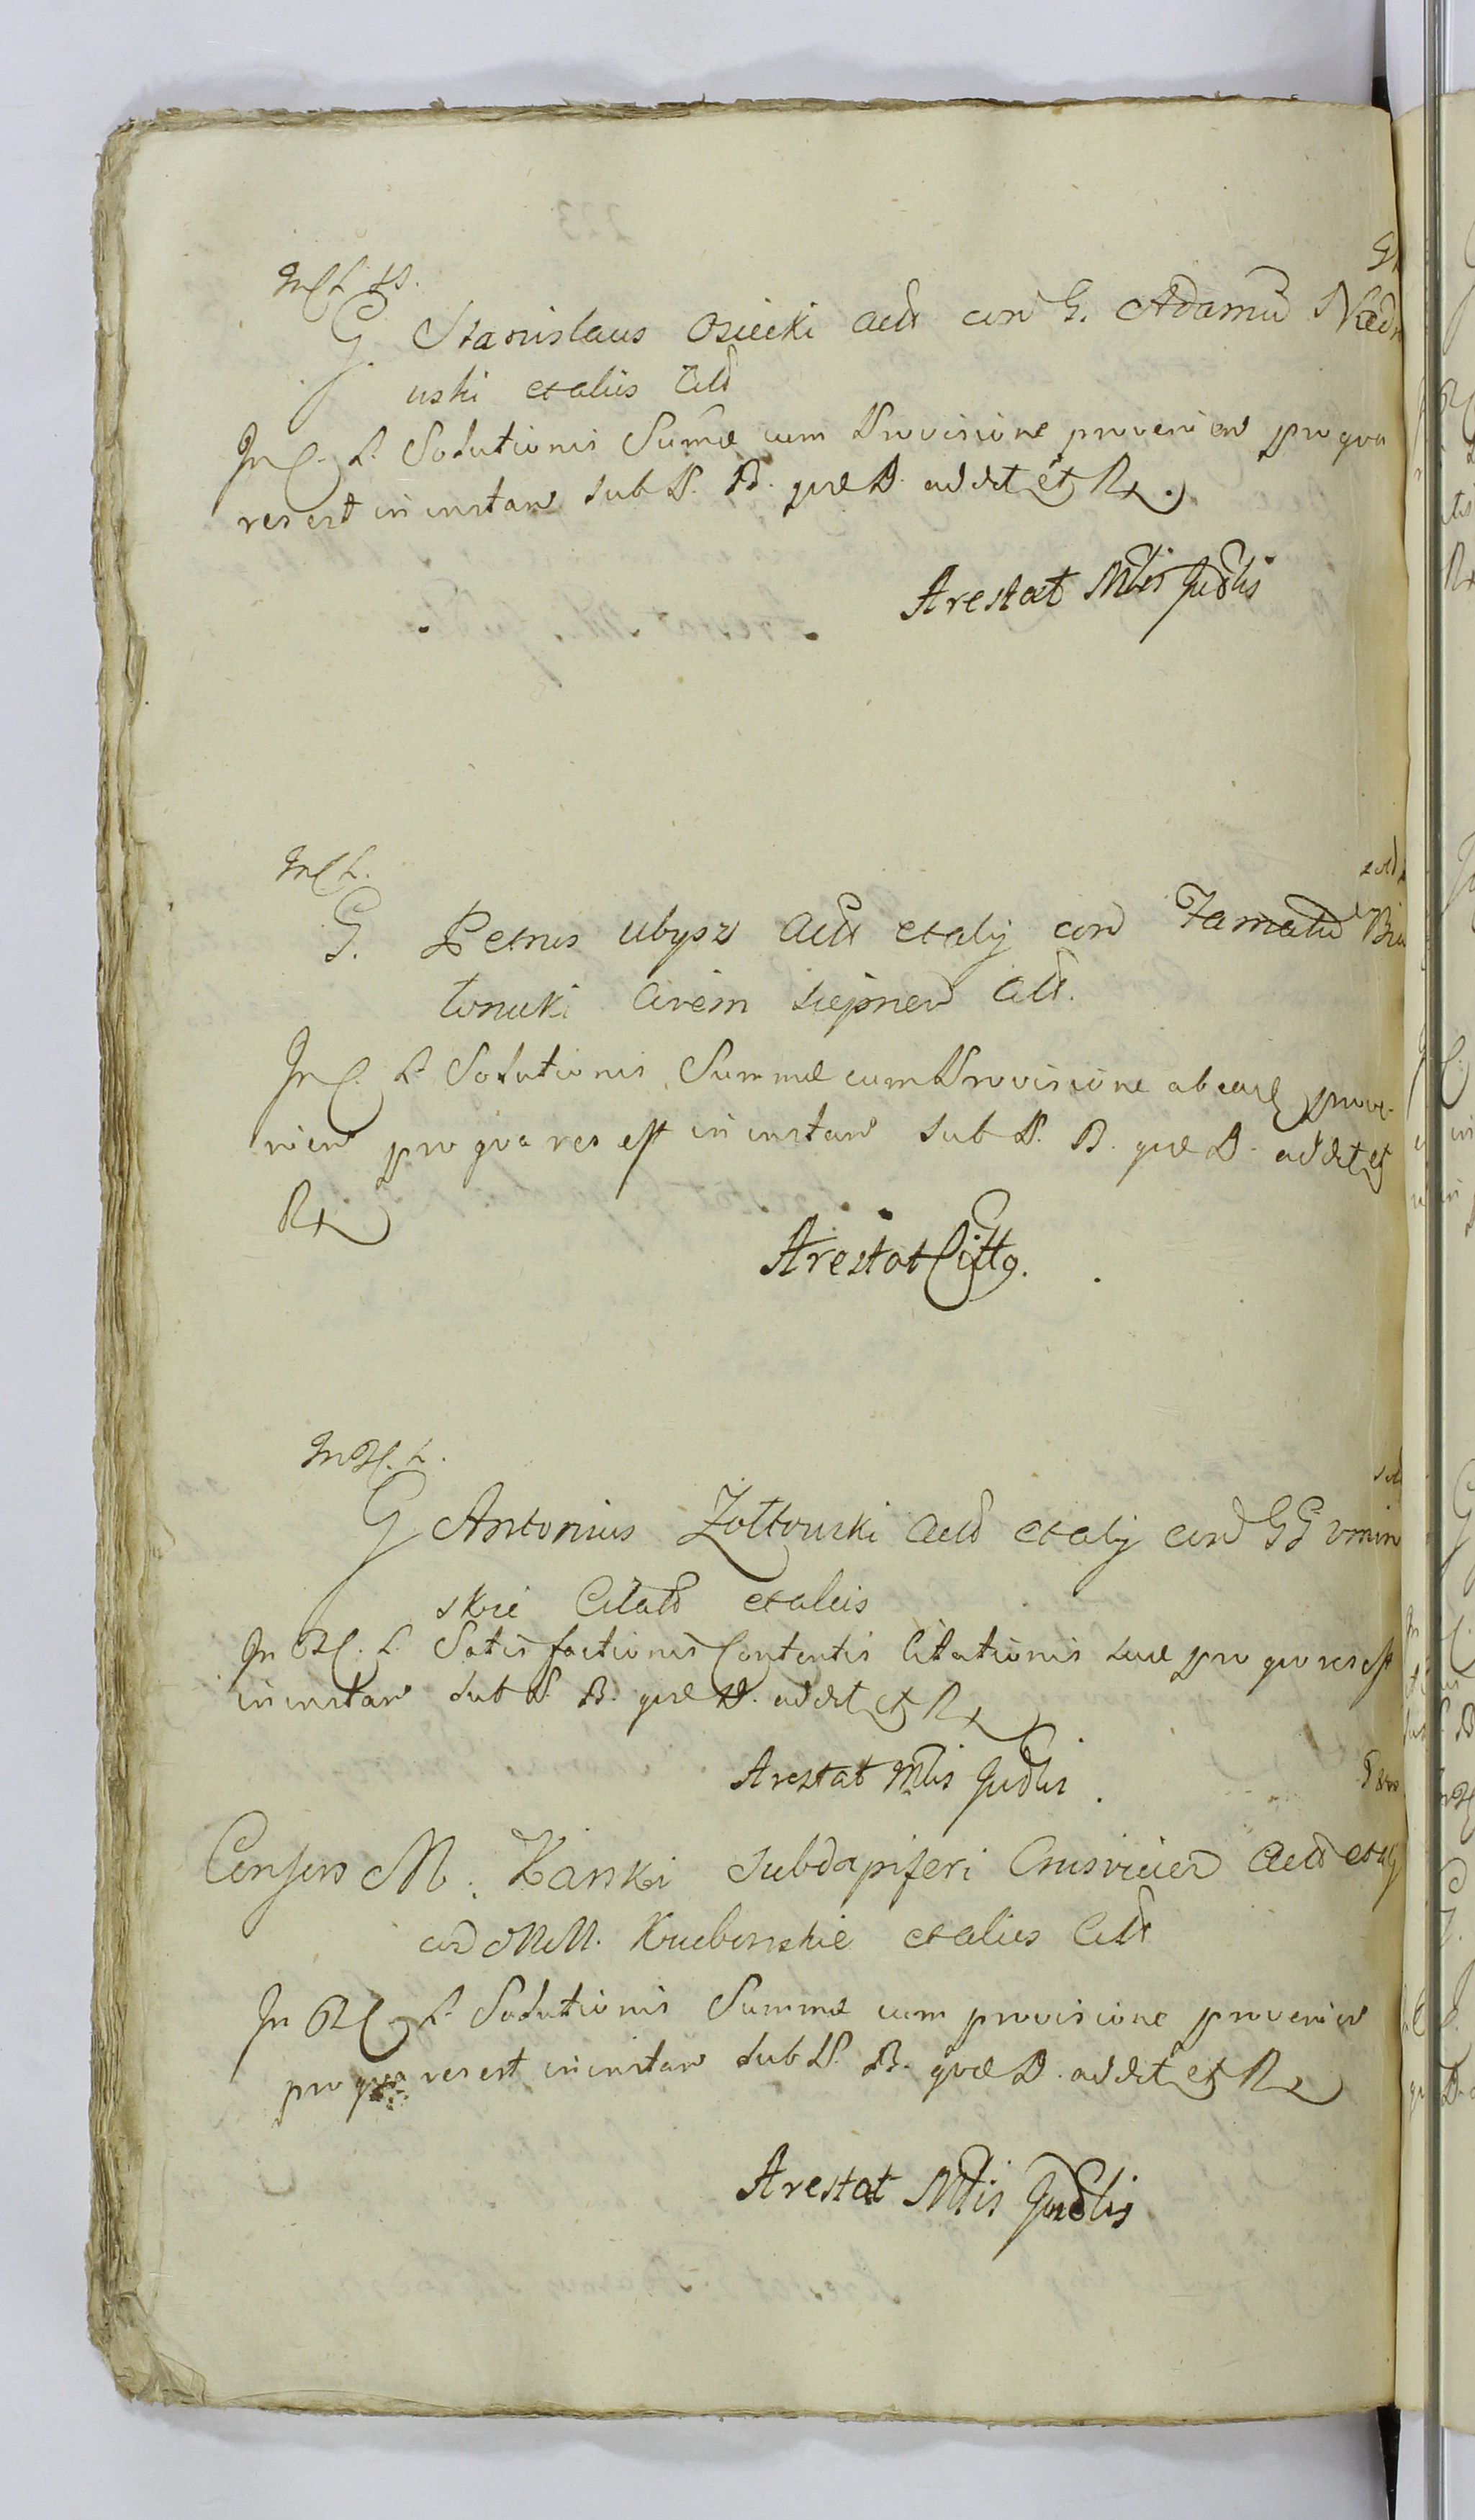 G Stanislaus Osiecki Actt con G. Adamũ
uski et aliis Citt
In C. L. Solutionis Sume cum Provisione provenien pro qua
res est in instan sub P. B. quæ P. addit et Rx.
Arestat Mtis Judlis
In C L.
G. Petrus Ubysz Actt et alij con Famatũ
tonuki Civem siepnen Citt.
In C. L. Solutionis Summæ cum Provisione ab eaq prove-
nien pro qua res est in instan sub P. B. quæ P. addit et
Rx
Arestat Citto.
In R C. L.
G Antonius Zottowski Actt et alij con GG Umin
skie Citatt et aliis
In R C. L. Satisfactionis Contentis Citationis suæ pro quo res est
in instan sub P. B. quæ P. addit et Rx
Arestat Mtis Judlis.
Consors M. Kanski Subdapiferi Crusvicien Actt et alij
con MM. et alies Citt
In R C L. Solutionis Summæ cum provisione provenien
pro qua res est in instan sub P. B. quæ P. addit et Rx
Arestat Mtis Judlis